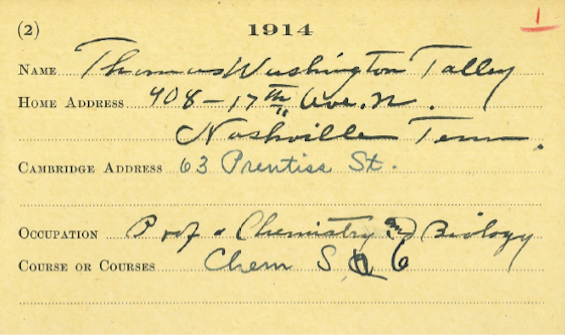 (2) 1914 1
NAME Thomas Washington Talley
HOME ADDRESS 908-17th Ave. N.
Nashville Tenn.
CAMBRIDGE ADDRESS 63 Prentiss St.
OCCUPATION Prof. Chemistry and Biology
COURSE OR COURSES Chem S 6